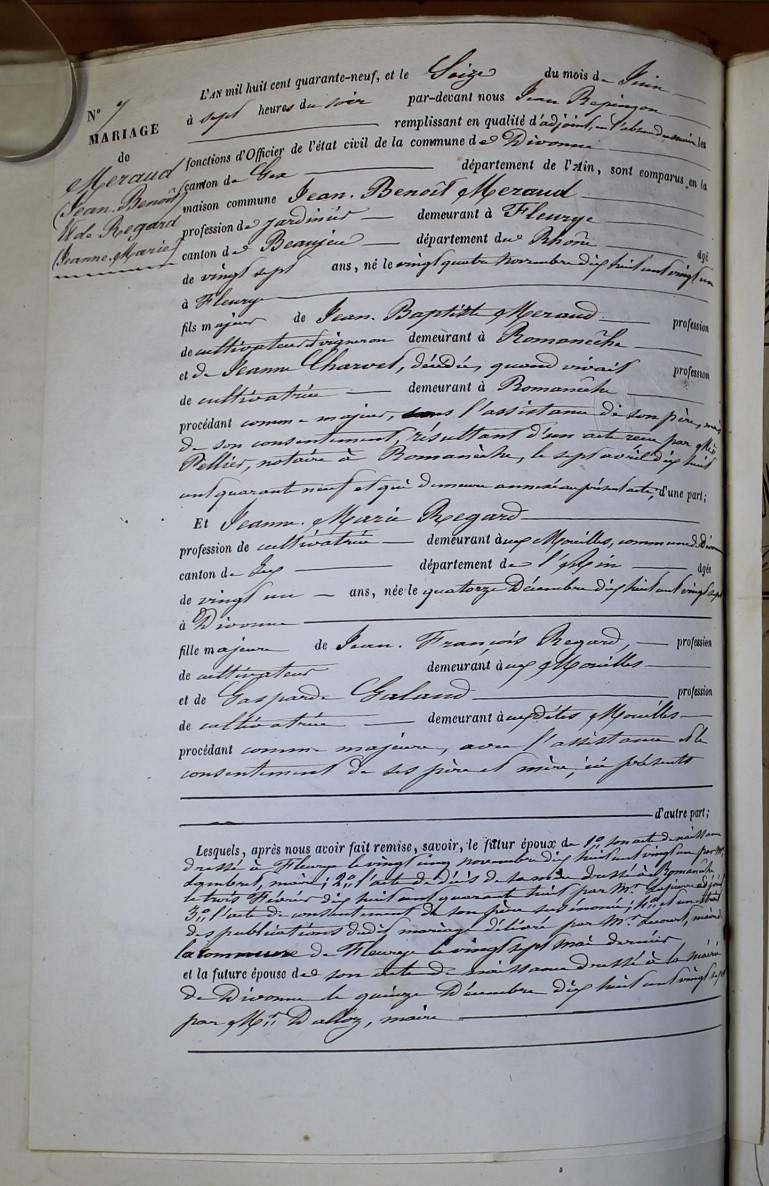 N° 7
MARIAGE
de
Meraud
(Jean. Benoît)
& de Regard
(Jeanne. Marie)
L'AN mil huit cent quarante-neuf, et le Seize du mois de Juin
à sept heures du soir par-devant nous Jean
remplissant en qualité d'adjoint, en l'absence du maire, les
fonctions d'Officier de l'état civil de la commune de Divonne
canton de Gex département de l'Ain, sont comparus en la
maison commune Jean. Benoît Meraud
profession de jardinier demeurant à Fleurye
canton de Beaujeu département du Rhône âgé
de vingt sept ans, né le vingt quatre Novembre dix huit cent vingt un
à Fleurye
fils majeur de Jean. Baptiste Meraud profession
de cultivateur & vigneron demeurant à Romanêche
et de Jeanne Charvet, décédée, quand vivait profession
de cultivatrice demeurant à Romanêche
procédant comme majeur, sans l'assistance de son père, mais
de son consentement, résultant d'un acte reçu par Me
Pellier, notaire à Romanêche, le sept avril dix huit
cent quarante neuf et qui demeure annexé au présent acte, d'une part;
Et Jeanne. Marie Regard
profession de cultivatrice demeurant aux Mouilles, commune de Divonne
canton de Gex département de l'Ain âgée
de vingt un ans, née le quatorze Décembre dix huit cent vingt sept
à Divonne
fille majeure de Jean. François Regard, profession
de cultivateur demeurant aux Mouilles
et de Gasparde Galand profession
de cultivatrice demeurant auxdites Mouilles
procédant comme majeure, avec l'assistance & le
consentement de ses père et mère, ici présents
d'autre part;
Lesquels, après nous avoir fait remise, savoir, le futur époux de 1° son acte de naissance
dressé à Fleurye le vingt cinq novembre dix huit cent vingt un par Mr
Sambret, maire; 2° l'acte de décès de sa mère dressé à Romanêche
le trois Février dix huit cent quarante huit par Mr. adjoint
3° l'acte de consentement de son père susénoncé; 4° et un extrait
des publications dudit mariage délivré par Mr maire de
la commune de Fleurye le vingt sept mai dernier
et la future épouse de son acte de naissance dressé à la mairie
de Divonne le quinze Décembre dix huit cent vingt sept
par Mr. Dalloz, maire